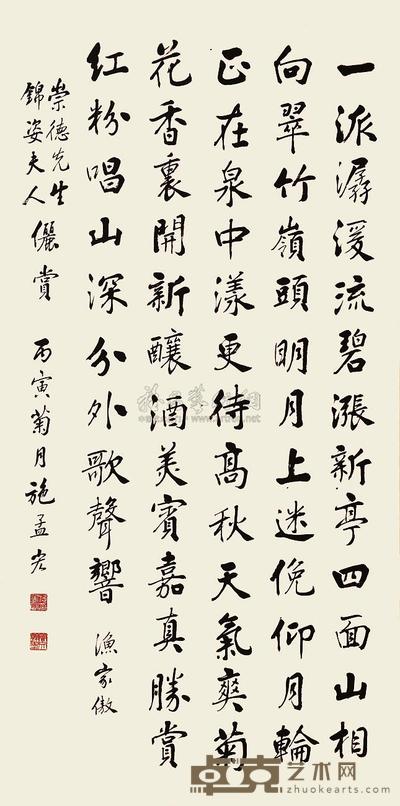 一派潺湲流碧漲新亭四面山相
向翠竹嶺頭明月上迷俛仰月輪
正在泉中漾更待高秋天氣爽菊
花香裏開新釀酒美賓嘉真勝賞
紅粉唱山深分外歌聲響 漁家傲
崇德先生
錦姿夫人
儷賞 丙寅菊月施孟宏
卓克艺术网
zhuokearts.com